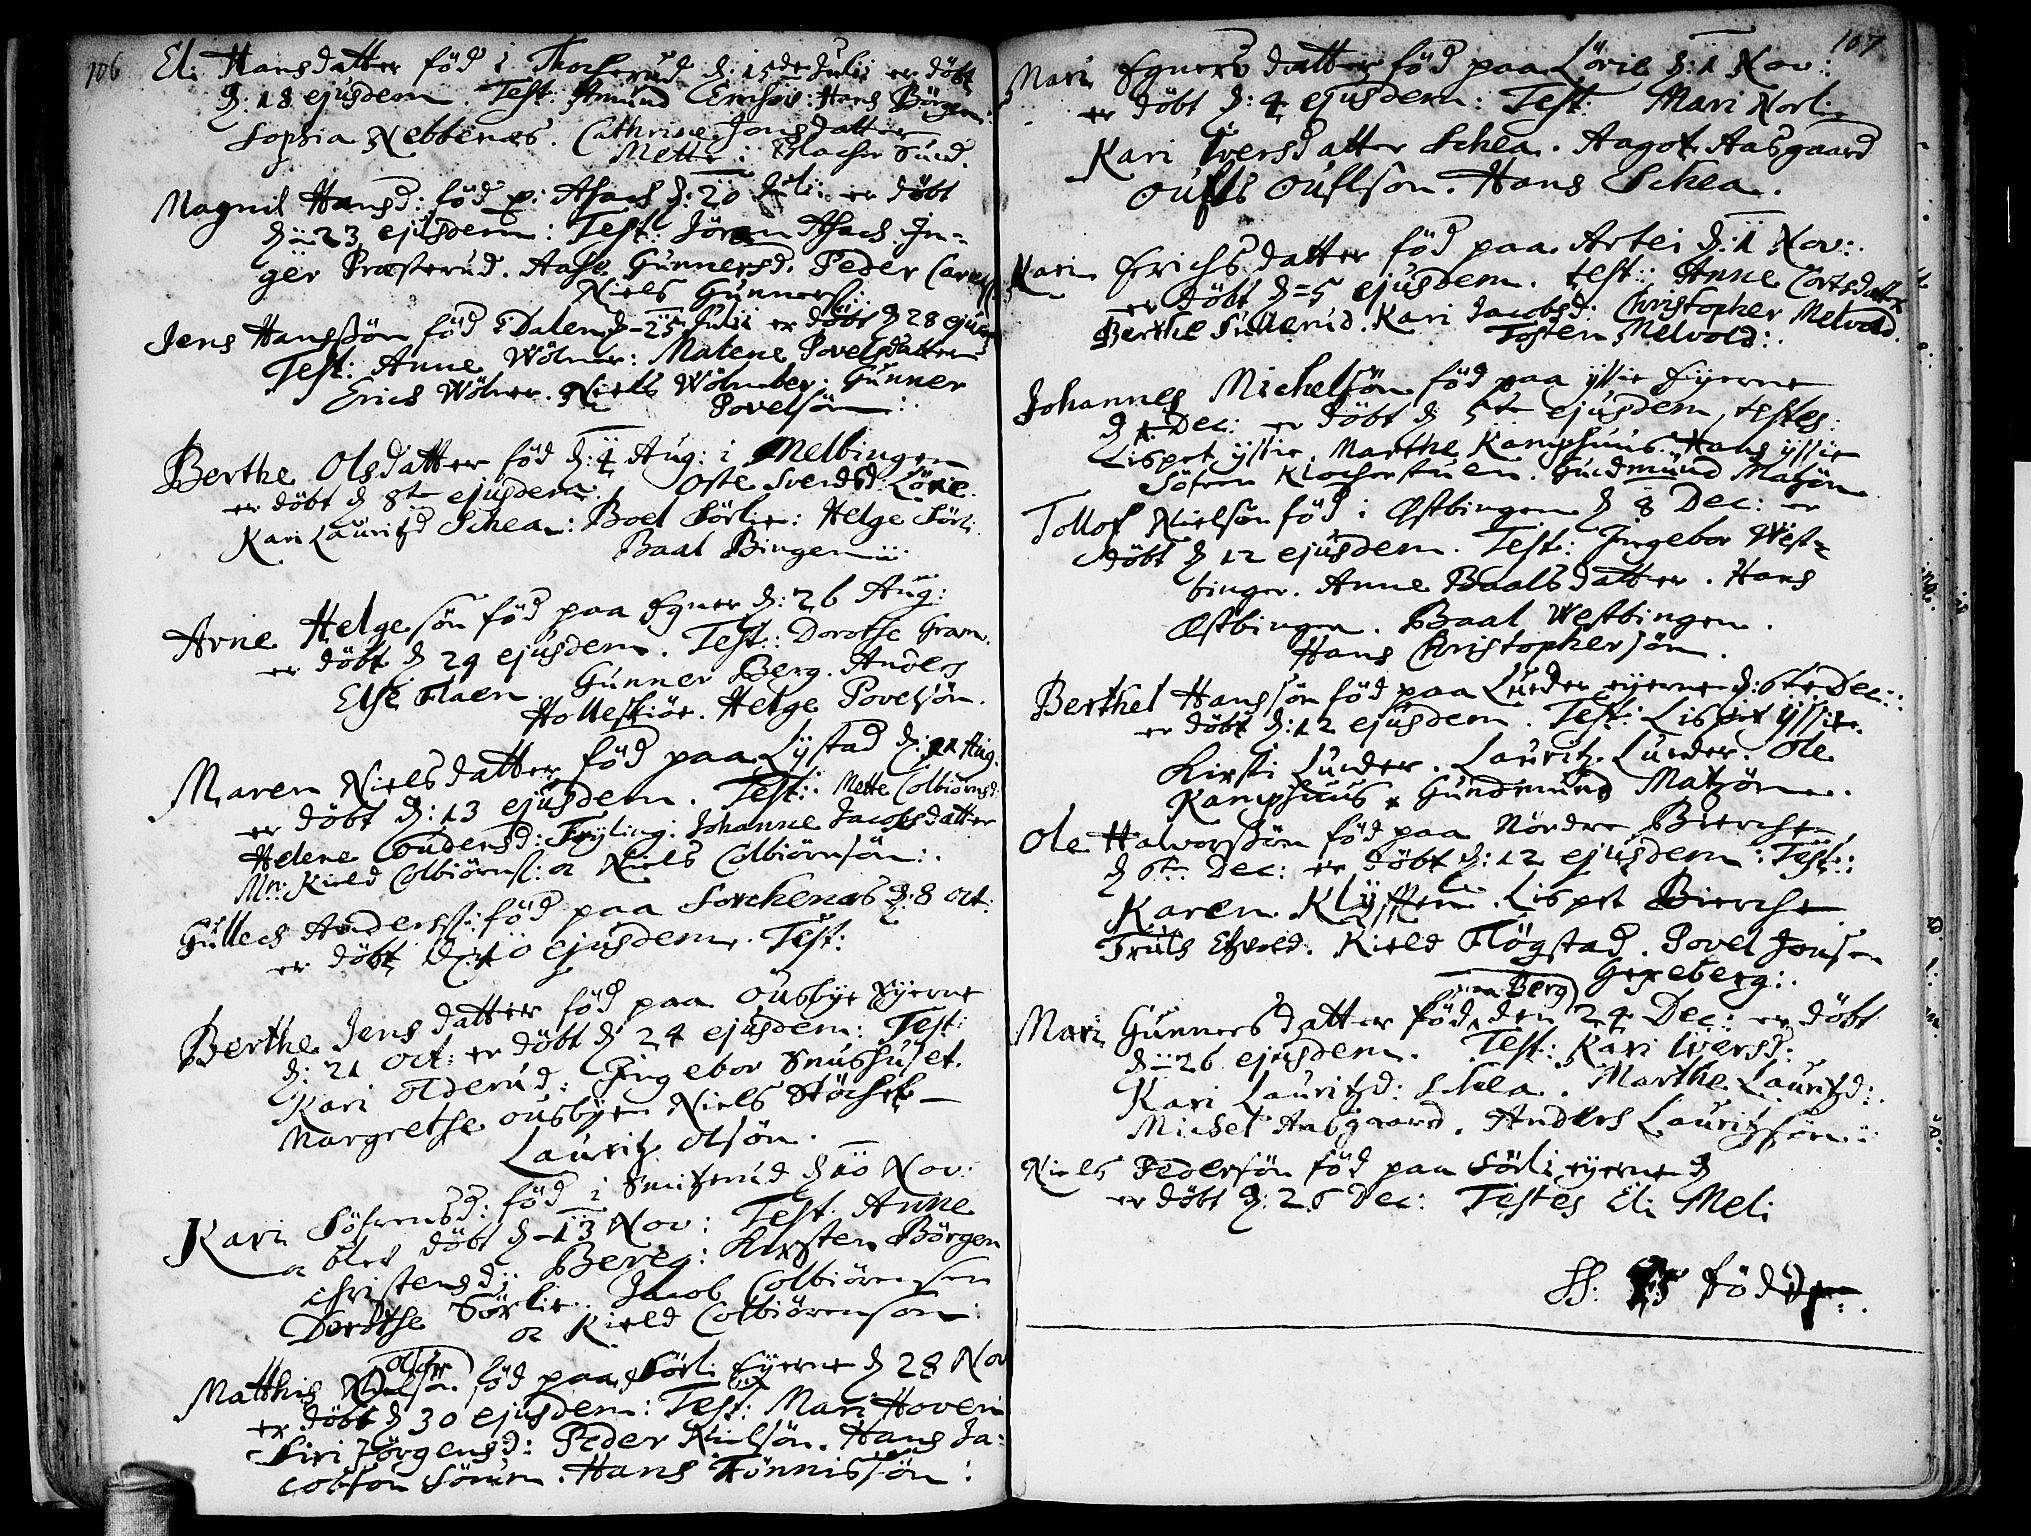 106
Eli Hansdatter föd i d: 15de Julii er döbt
d: 18 ejusdem. Test: Amund Erichsön: Hans Börgen:
Sophia Nebbenæs. Cathrine Jonsdatter
Mette i
Magnil Hansd: föd p: Asach d: 20 Juli: er döbt
d: 23 ejusdem: Test: Jören Asach. In-
ger Præsterud. Aase Gunnersd. Peder
Niels Gunners
Jens Hanssön föd i Dalen d: 25 Julii er döbt d 28 ejusd
Test: Anne Wölner: Malene Povelsdatter
Erich Wölner. Niels Wölneber: Gunner
Povelsön:
Berthe Olsdatter föd d: 4 Aug: i Melbingen
er döbt d 8te ejusdem: Oste Svendsd: Lörie.
Kari Lauritzd Schea: Boel Sörlie: Helge Sörli
Baal Bingen
Arne Helgesön föd paa Egner d: 26 Aug:
er döbt d 29 ejusdem. Test: Dorothe Gram.
Else Flaen. Gunner Berg. Anders
Holleskiör. Helge Povelsön.
Maren Nielsdatter föd paa Lystad d: 11 Aug.
er döbt d: 13 ejusdem. Test: Mette Colbiörnsd:
Helene Coudersd: Frÿling: Johanne Jacobsdatter
Mr: Kield Colbiörns: oc Niels Colbiörnsön:
Gullech Anderss: föd paa Sorkenæs d: 8 Oct:
er döbt d: 10 ejusdem. Test:
Berthe Jensdatter föd paa Ousbye Eyerne
d: 21 Oct: er döbt d 24 ejusdem: Test:
Kari Olderud: Jngebor Snushuset.
Margrethe Ousbye Niels Stöchet
Lauritz Olsön.
Kari Söfrensd: föd i Smiterud d 10 Nov:
oc blef döbt d 13 Nov: Test Anne
Christensd: Bereg: Kirsten Börgen
Dorothe Sörlie. Jacob Colbiörensen
oc Kield Colbiörenson:
Matthis Olsön föd paa Sörli Eyerne d 28 Nov
er döbt d 30 ejusdem: Test: Mari Hoven
Siri Jörgensd: Peder Nielsön. Hans Ja-
cobson Sörum. Hans Tönnissön:
107
Mari Egnersdatter föd paa Lörie d: 1 Nov:
er döbt d: 4 ejusdem: Test: Mari Norli
Kari Iversdatter Schea. Aagot Aasgaard
Oufls Ouflson. Hans Schea.
Kari Erichsdatter föd paa Artei d: 1 Nov:
er döbt d=5 ejusdem. test: Anne Cortsdatter
Berthe Sullerud. Kari Jacobsd: Christopher Melvold.
Tosten Melvold:
Johannes Michelsön föd paa yssie Eyerne
d 1 Dec: er döbt d 5te ejusdem, testes:
Lispet yssie. Marthe Kamphuus. Hans yssie
Söfren Klocherstuen. Gudmund Matsön
Tollof Nielsön föd i Østbingen d 8 Dec: er
döbt d 12 ejusdem. Test: Jngebor West-
binger. Anne Baalsdatter. Hans
Østbingen. Baal Westbingen.
Hans Christophersön.
Berthel Hanssön föd paa Lunder eyerne d: 6te Dec:
er döbt d: 12 ejusdem. Test: Lispet yssie.
Kirsti Lunder. Lauritz Lunder. Ole
Kamphuus Gundmund Matsön.
Ole Halvorssön föd paa Nördre Bierche
d 6te Dec: er döbt d: 12 ejusdem: Test:
Karen Klÿften. Lispet Bierche
Truls Elsvold. Kield Flögstad. Povel Jonsen
Gereberg:
Mari Gunnersdatter föd paa Berg den 24 Dec: er döbt
d=26 ejusdem. Test: Kari Iversd:
Kari Lauritzd: Schea. Marthe Lauritzd:
Michel Aasgaard. Anders Lauritzsön
Niels Pedersön föd paa Sörli eyerne d
er döbt d: 26 Dec: Testes Eli Meli